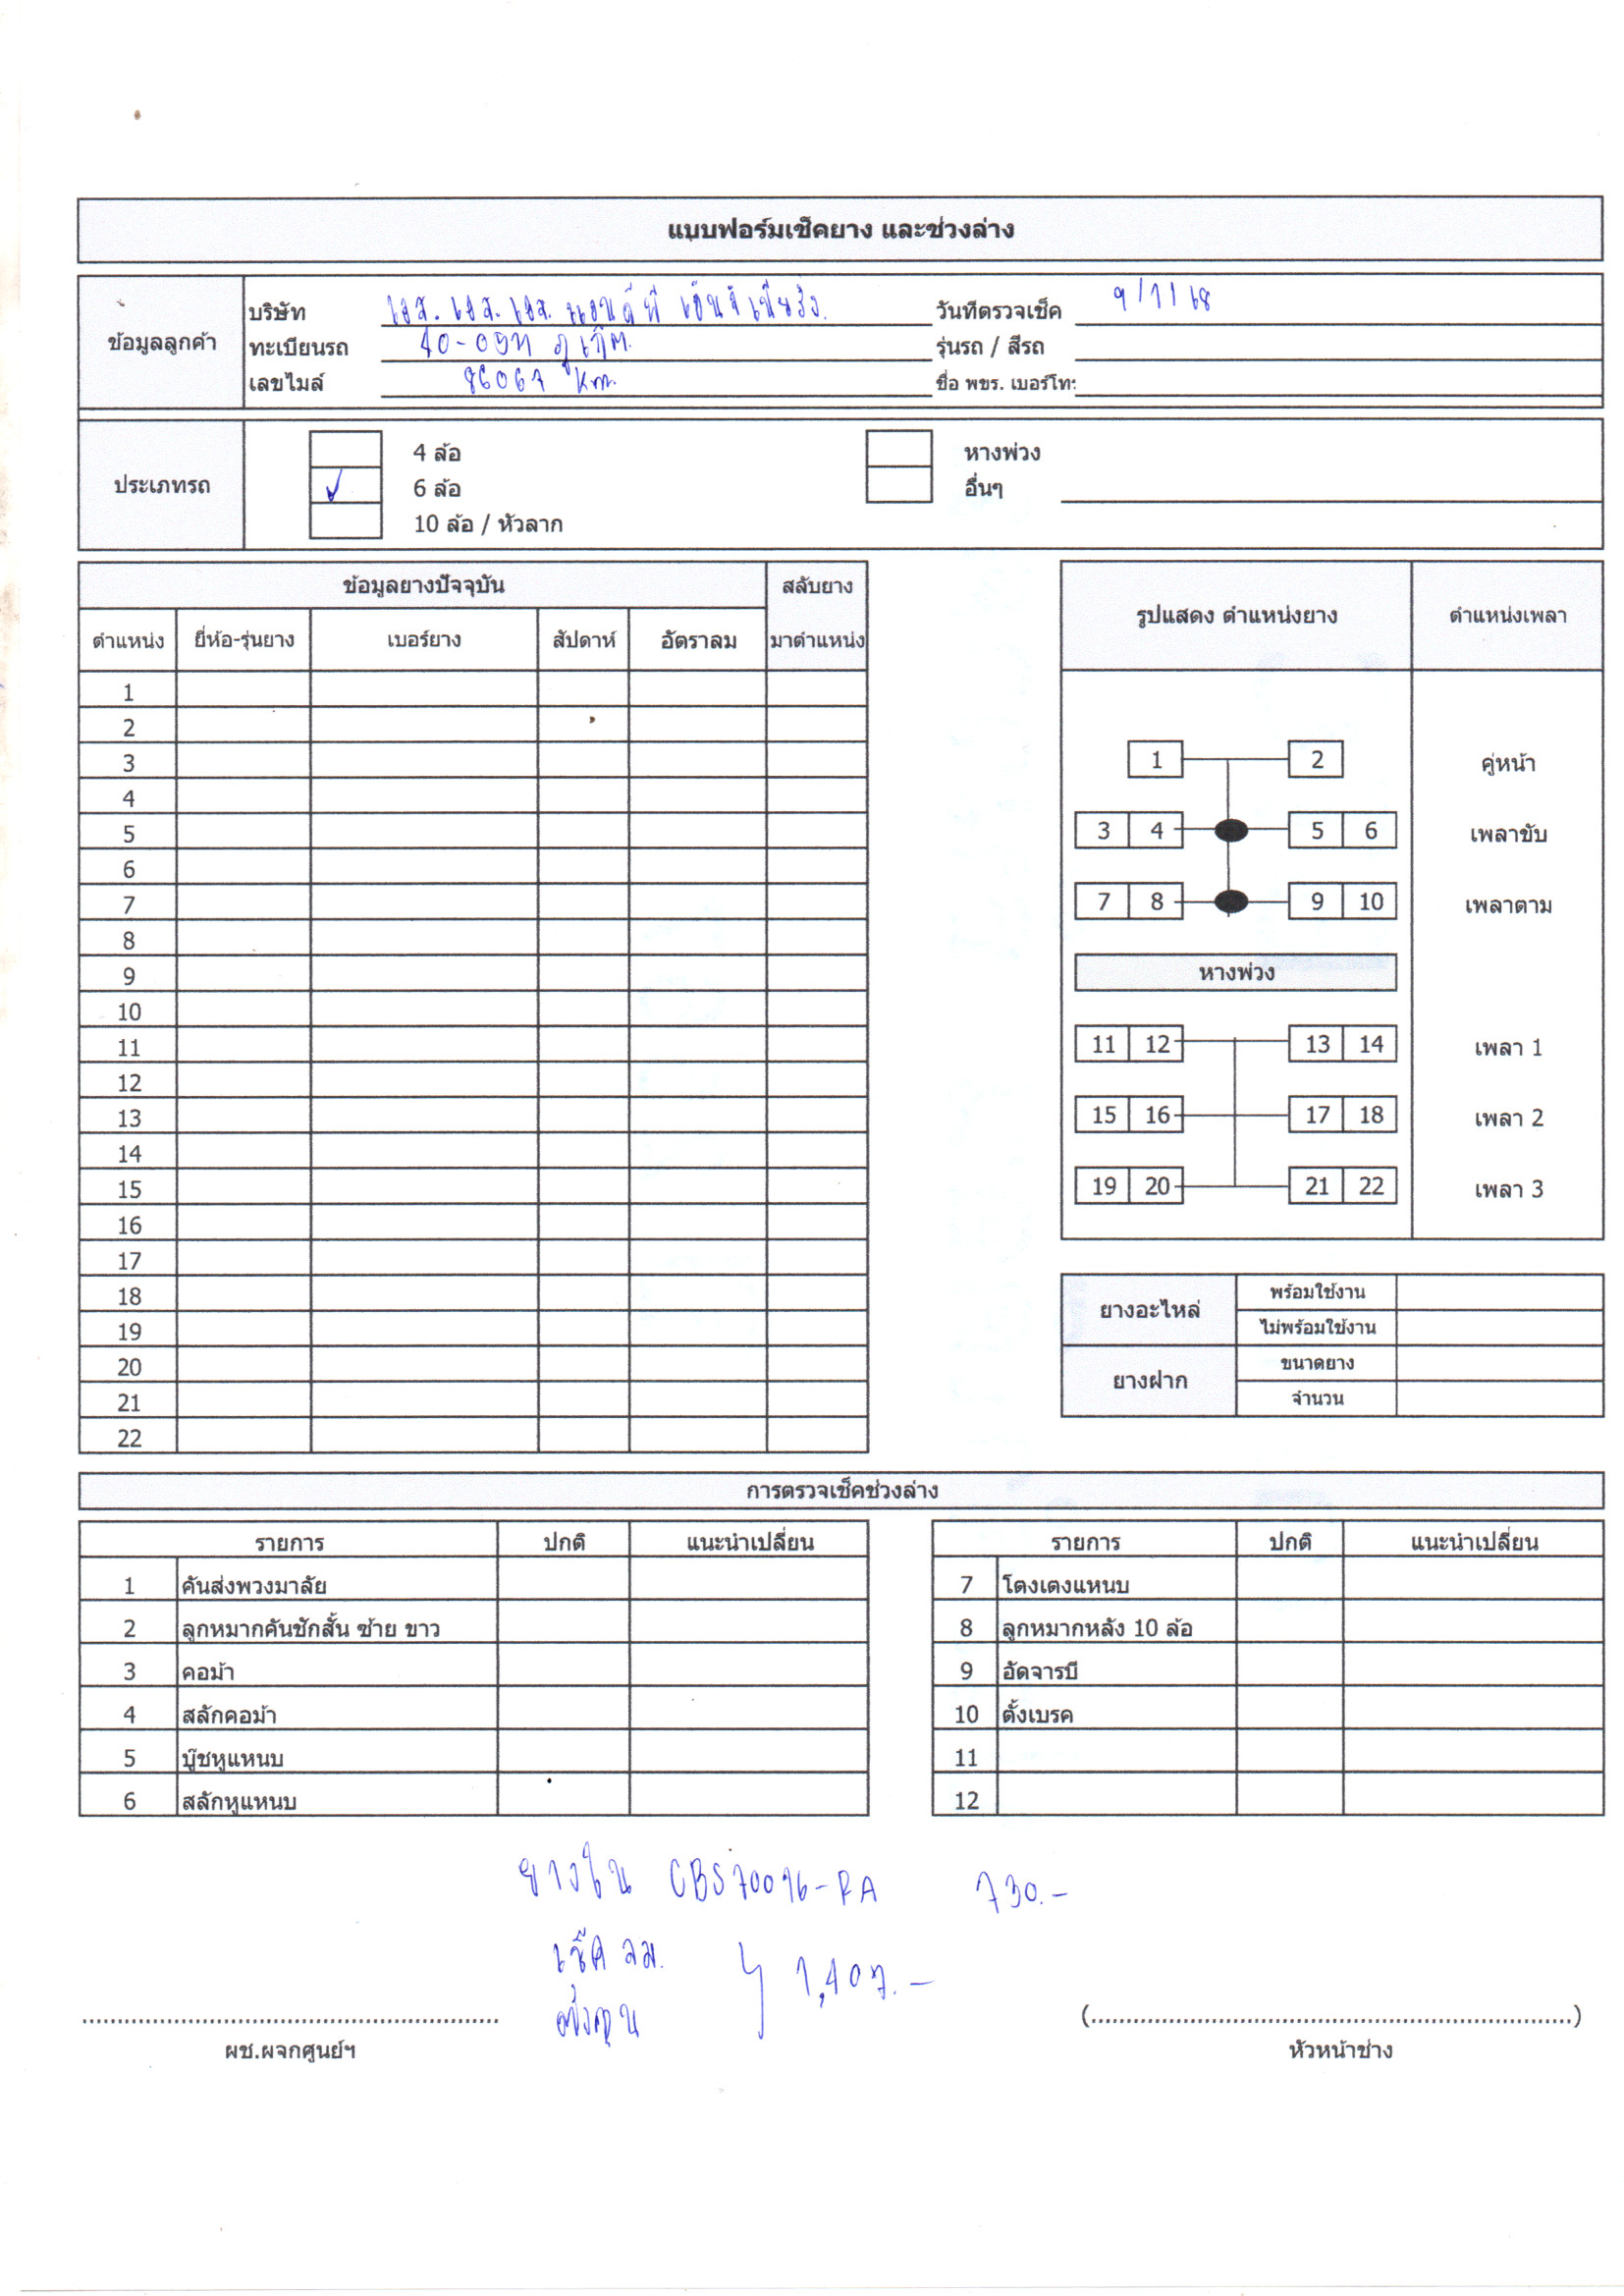 แบบฟอร์มเช็คยาง และช่วงล่าง
ข้อมูลลูกค้า
บริษัท เอส. เอส. เอส. แอนด์ พี เอ็นจิเนียริ่ง. วันที่ตรวจเช็ค 9/1/68
ทะเบียนรถ ภูเก็ต. รุ่นรถ / สีรถ
เลขไมล์ 86067 km. ชื่อ พขร. เบอร์โท:
ประเภทรถ
4 ล้อ หางพ่วง
✓ 6 ล้อ อื่นๆ
10 ล้อ / หัวลาก
ข้อมูลยางปัจจุบัน สลับยาง
ตำแหน่ง ยี่ห้อ-รุ่นยาง เบอร์ยาง สัปดาห์ อัตราลม มาตำแหน่ง
1
2
3
4
5
6
7
8
9
10
11
12
13
14
15
16
17
18
19
20
21
22
รูปแสดง ตำแหน่งยาง ตำแหน่งเพลา
1 2 คู่หน้า
3 4 5 6 เพลาขับ
7 8 9 10 เพลาตาม
หางพ่วง
11 12 13 14 เพลา 1
15 16 17 18 เพลา 2
19 20 21 22 เพลา 3
ยางอะไหล่ พร้อมใช้งาน
ไม่พร้อมใช้งาน
ยางฝาก ขนาดยาง
จำนวน
การตรวจเช็คช่วงล่าง
รายการ ปกติ แนะนำเปลี่ยน
1 คันส่งพวงมาลัย
2 ลูกหมากคันชักสั้น ซ้าย ขาว
3 คอม้า
4 สลักคอม้า
5 บู๊ชหูแหนบ
6 สลักหูแหนบ
รายการ ปกติ แนะนำเปลี่ยน
7 โตงเตงแหนบ
8 ลูกหมากหลัง 10 ล้อ
9 อัดจารบี
10 ตั้งเบรค
11
12
ยางใน 730.-
เช็ค ลม.
1,407.-
ผช.ผจกศูนย์ฯ
(..........)
หัวหน้าช่าง